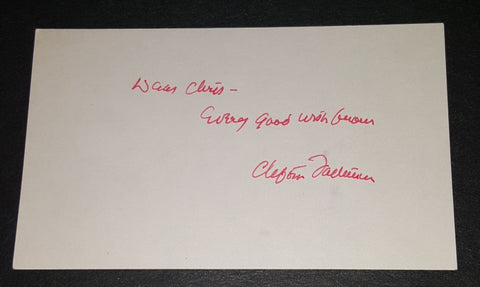 Dear Chris –
Every good wish from
Clifton Fadiman